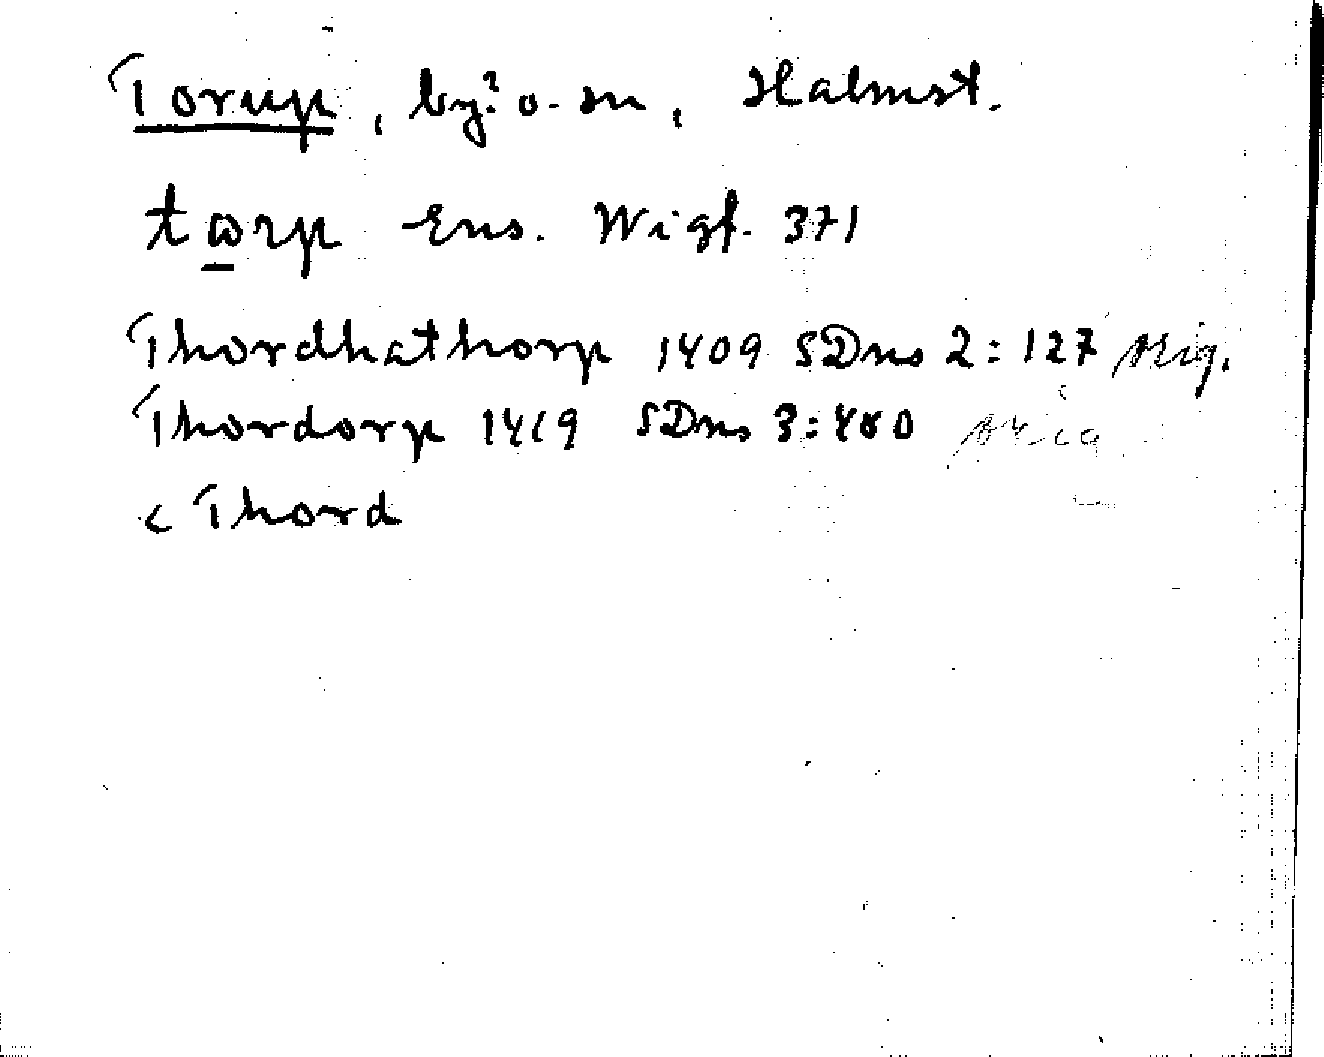 Torup, by? o. sn, Halmst.
tωrp Ens. Wigf. 371
Thordhathorp 1409 SDns 2:127 orig.
Thordorp 1419 SDns 3:480 orig.
< Thord